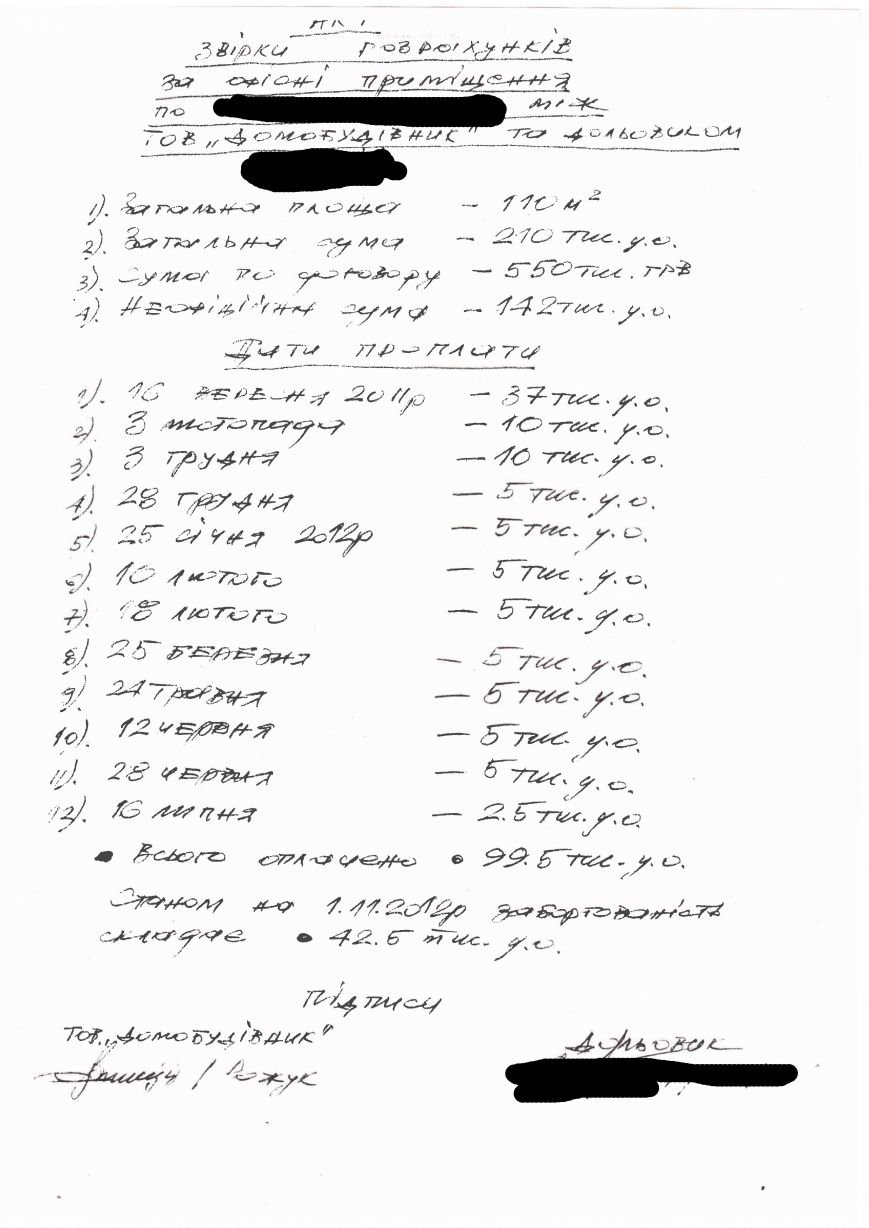 АКТ
ЗВІРКИ РОЗРАХУНКІВ
за офісні приміщення
по між
ТОВ „ДОМОБУДІВНИК" та дольовиком
1). Загальна площа – 110 м²
2). Загальна сума – 210 тис. у.о.
3). Сума по договору – 550 тис. грв
4). Неофіційна сума – 142 тис. у.о.
Дати проплати
1). 16 вересня 2011р – 37 тис. у.о.
2). 3 листопада – 10 тис. у.о.
3). 3 грудня – 10 тис. у.о.
4). 28 грудня – 5 тис. у.о.
5). 25 січня 2012р – 5 тис. у.о.
6). 10 лютого – 5 тис. у.о.
7). 18 лютого – 5 тис. у.о.
8). 25 березня – 5 тис. у.о.
9). 24 травня – 5 тис. у.о.
10). 12 червня – 5 тис. у.о.
11). 28 червня – 5 тис. у.о.
12). 16 липня – 2.5 тис. у.о.
• Всього оплачено • 99.5 тис. у.о.
Станом на 1.11.2012р заборгованість
складає • 42.5 тис. у.о.
Підписи
ТОВ „ДОМОБУДІВНИК" Дольовик
/ Рожук